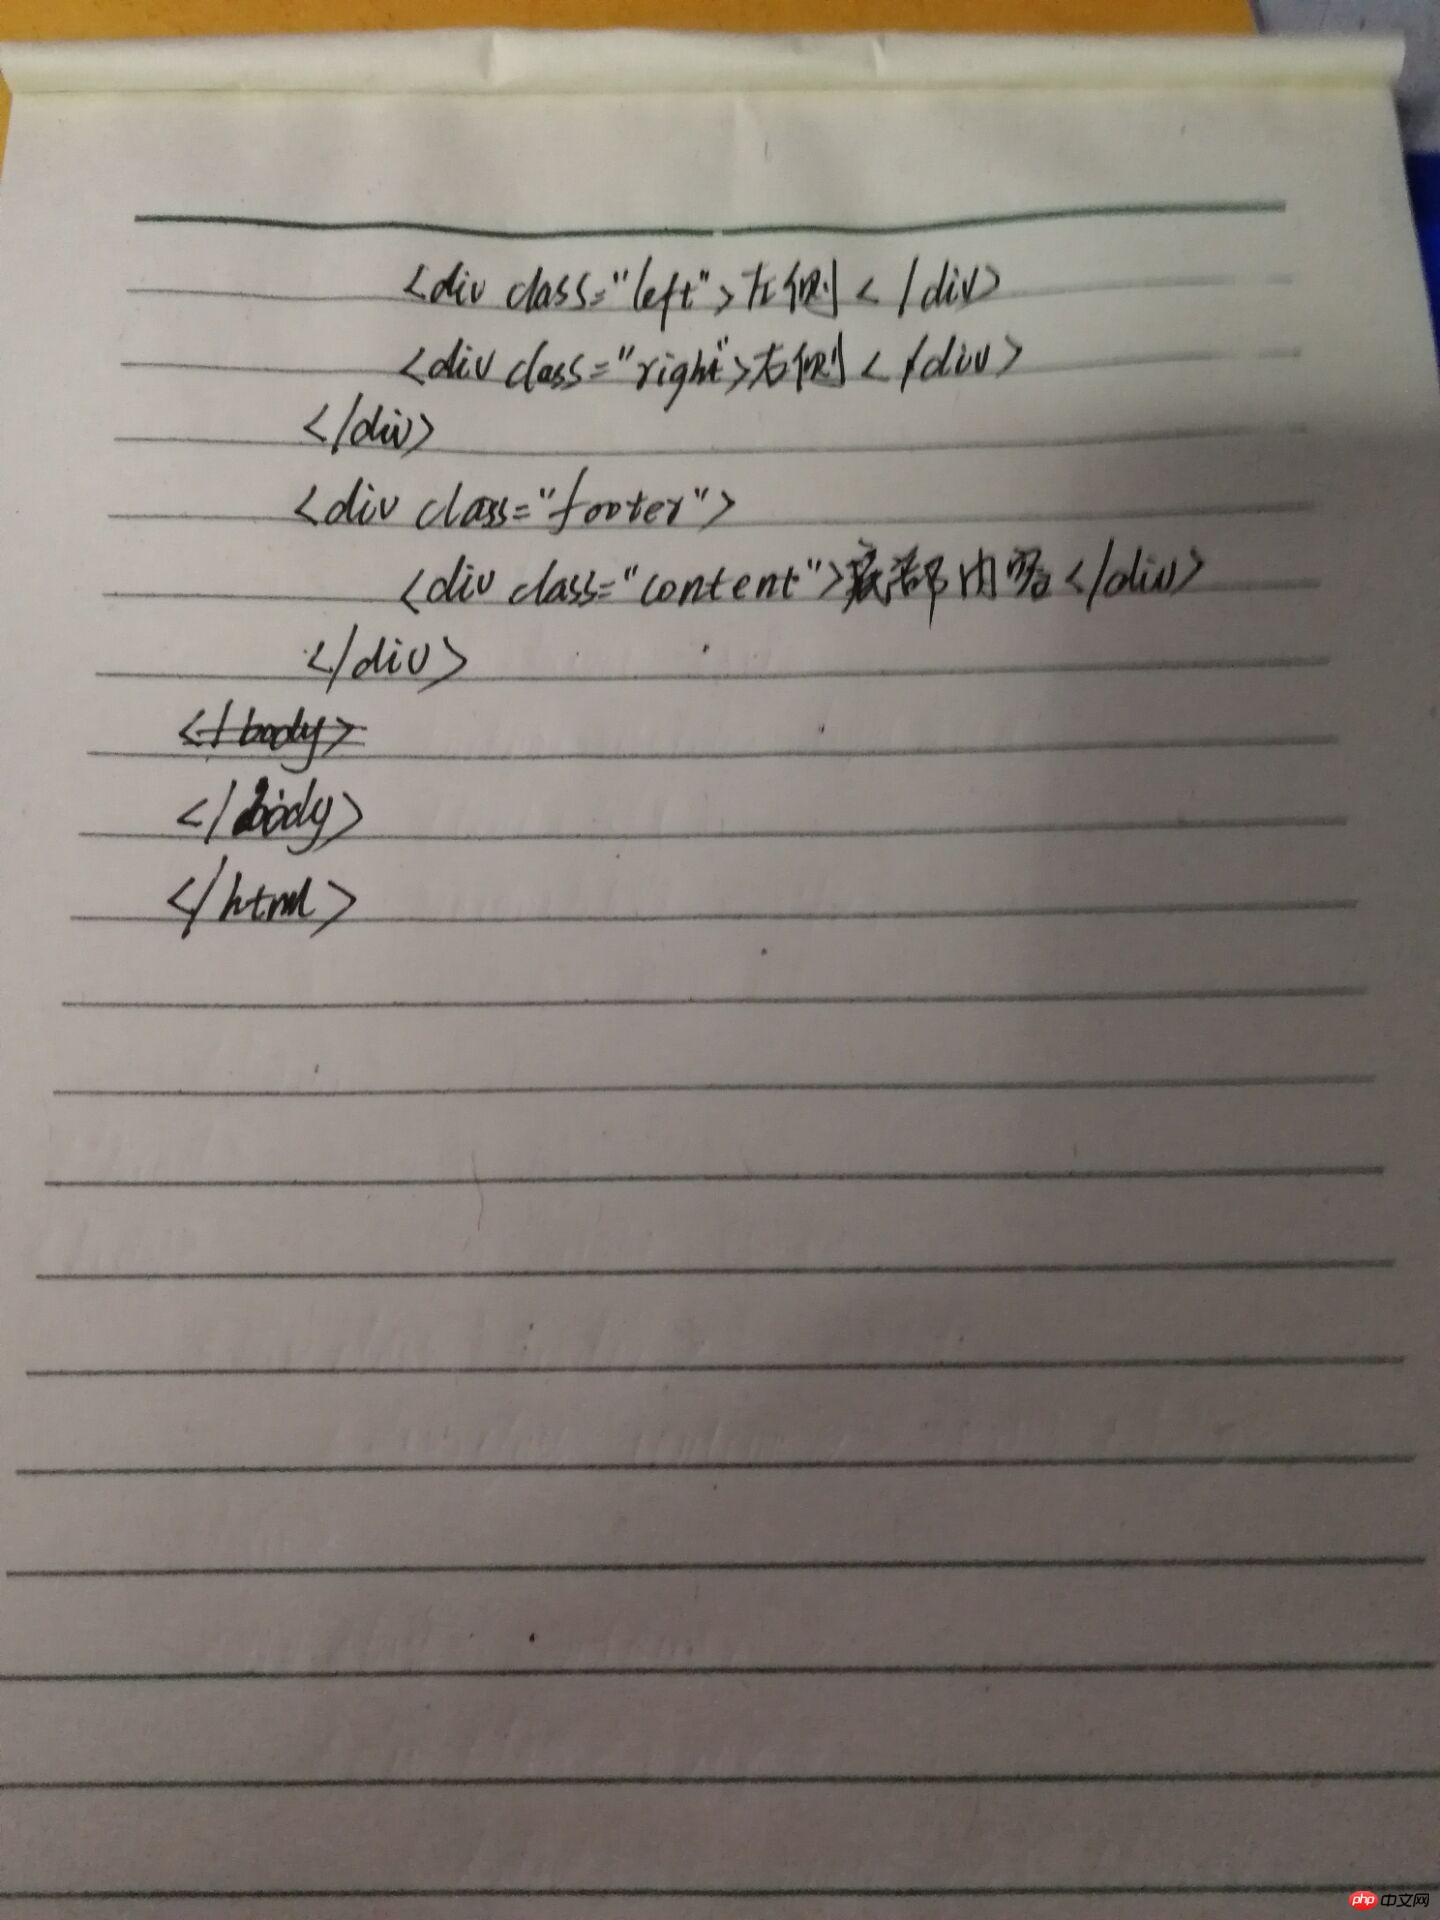 <div class="left">左侧</div>
<div class="right">右侧</div>
</div>
<div class="footer">
<div class="content">底部内容</div>
</div>
</body>
</body>
</html>
php中文网